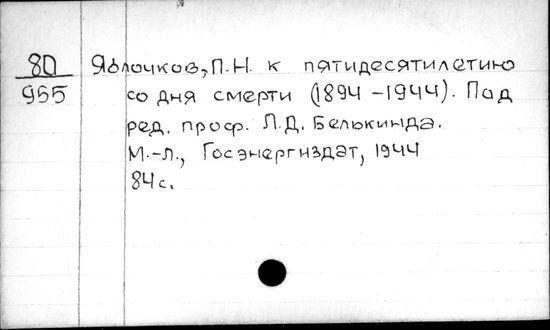 80
955
Яблочков, П.Н. к пятидесятилетию
со дня смерти (1894-1944). Под
ред. проф. Л.Д. Белькинда.
М.-Л., Госэнергиздат, 1944
84 с.